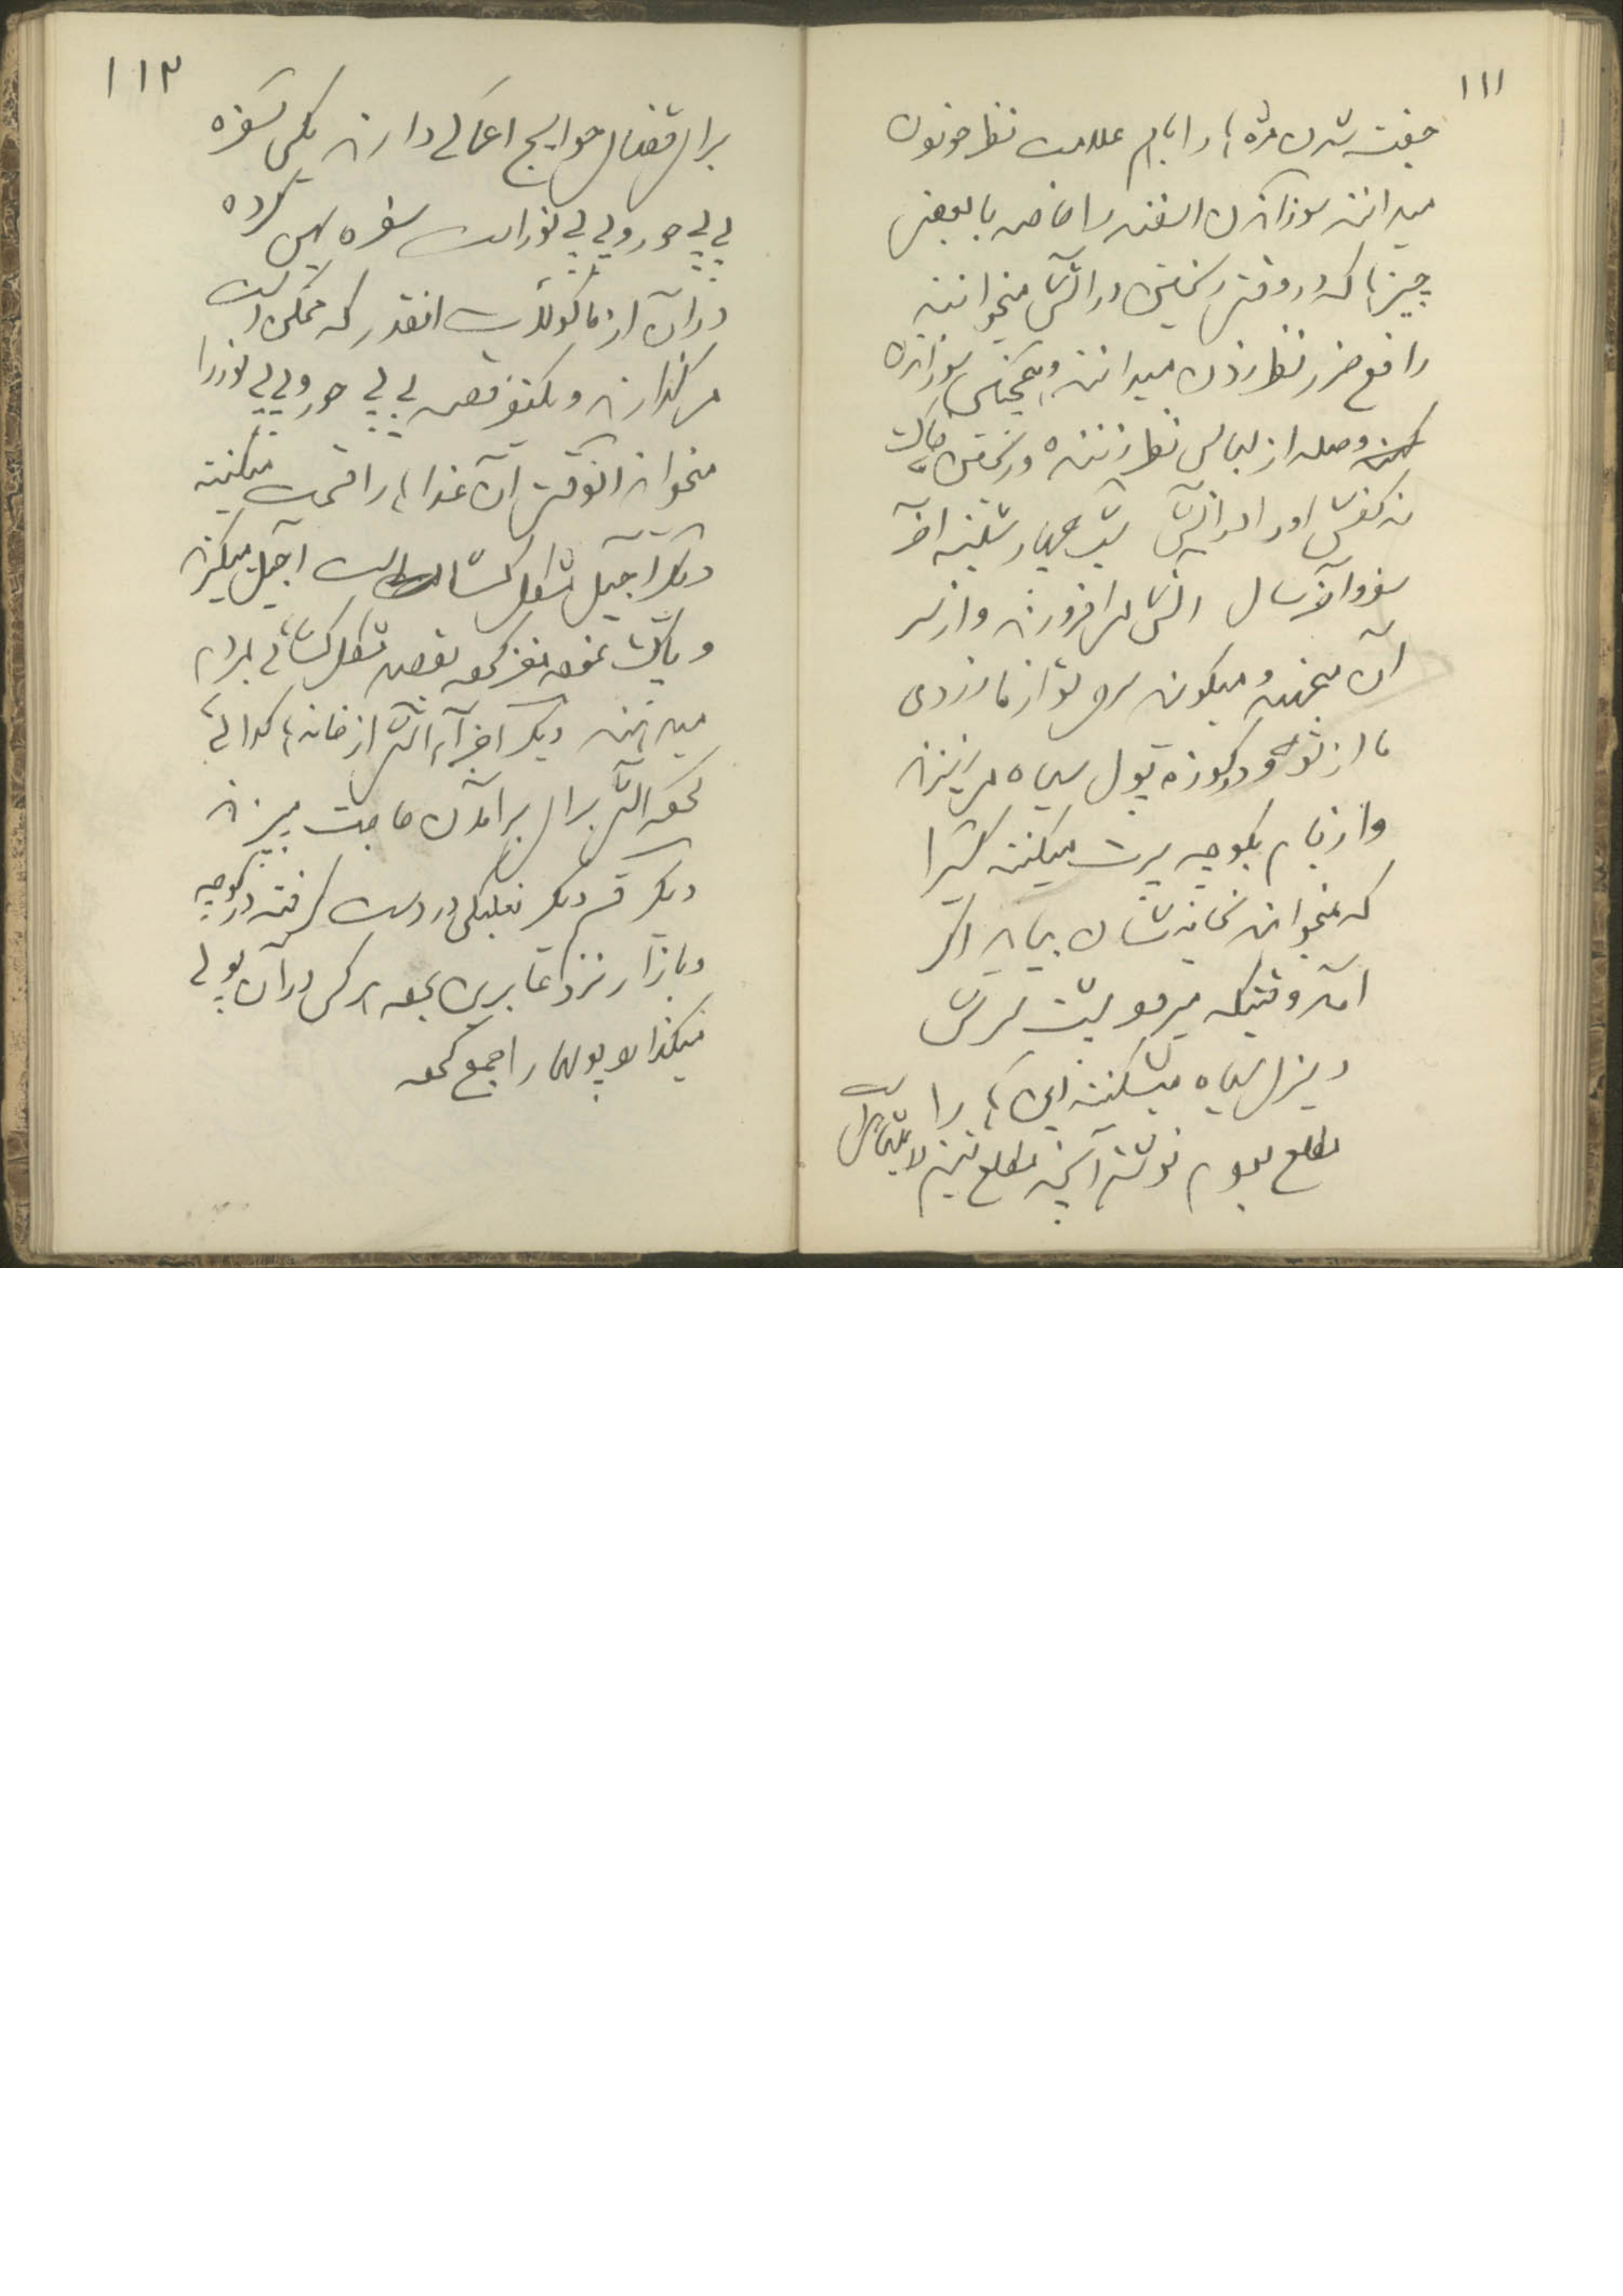 ۱۱۱
جفت شدن مژه‌ها را با هم علامت نظر خوردن
میدانند سوزاندن اسفند را خاصه با بعضی
چیزها که در وقت ریختن در آتش میخوانند
رافع ضرر نظر زدن میدانند و همچنین سوزاندن
وصله از لباس نظر زننده و ریختن خاک
ته کفش او را در آتش شب چهارشنبه آخر
صفر و آخر سال آتش می افروزند و از سر
آن میجهند و میگویند سرخی تو از ما زردی
ما از تو و در کوزه پول سیاه میریزند
و از بام بکوچه پرت میکنند کسیرا
که نمیخواهند بخانه‌شان بیاید اگر
آمد وقتیکه میرود پشت سرش
دیزی سیاه میشکنند این‌ها را
مطلع بودم نوشتم آنچه مطلع نیستم
۱۱۲
برای قضای حوایج اعمالی دارند یکی سفره
بی بی حور و بی بی نور است سفره پهن کرده
در آن از ماکولات آنقدر که ممکن است
میگذارند و یکنفر قصه بی بی حور و بی بی نور را
میخواند آنوقت آن غذاها را قسمت میکنند
دیگر آجیل مشکل گشا است آجیل میگیرند
و پاک نموده مغز کرده بقصد مشکل گشائی بمردم
میدهند دیگر آخر آش از خانه‌ها گدائی
کرده آش برای برآمدن حاجت میپزند
دیگر قسم دیگر نعلبکی در دست گرفته در کوچه
و بازار نزد عابرین برده هر کس در آن پولی
میگذارد پولها را جمع کرده